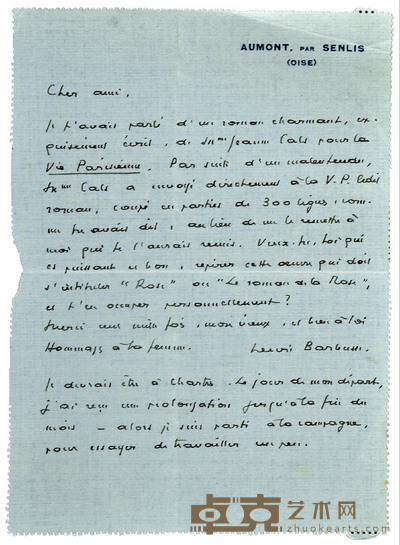 AUMONT, PAR SENLIS
(OISE)
Cher ami,
Je t'avais parlé d'un roman charmant, ex-
quisement écrit, de Mme Jeanne Cals pour la
Vie Parisienne. Par suite d'un malentendu,
Mme Cals a envoyé directement à la V.P. ledit
roman, coupé en parties de 300 lignes, com-
me tu avais dit, au lieu de me le remettre à
moi qui te l'aurais remis. Veux-tu, toi qui
es puissant et bon, repérer cette œuvre qui doit
s'intituler "Rose" ou "Le roman de la Rose",
et t'en occuper personnellement?
Merci une mille fois, mon vieux, et bien à toi
Hommages à ta femme. Henri Barbusse.
Je devrais être à Chartres. Le jour de mon départ,
j'ai reçu une prolongation jusqu'à la fin du
mois – alors je suis parti à la campagne,
pour essayer de travailler un peu.
卓克艺术网
zhuokearts.com